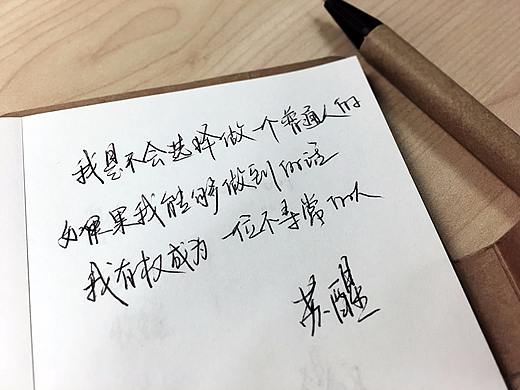 我是不会选择做一个普通人的
如果我能够做到的话
我有权成为一位不寻常的人
苏醒